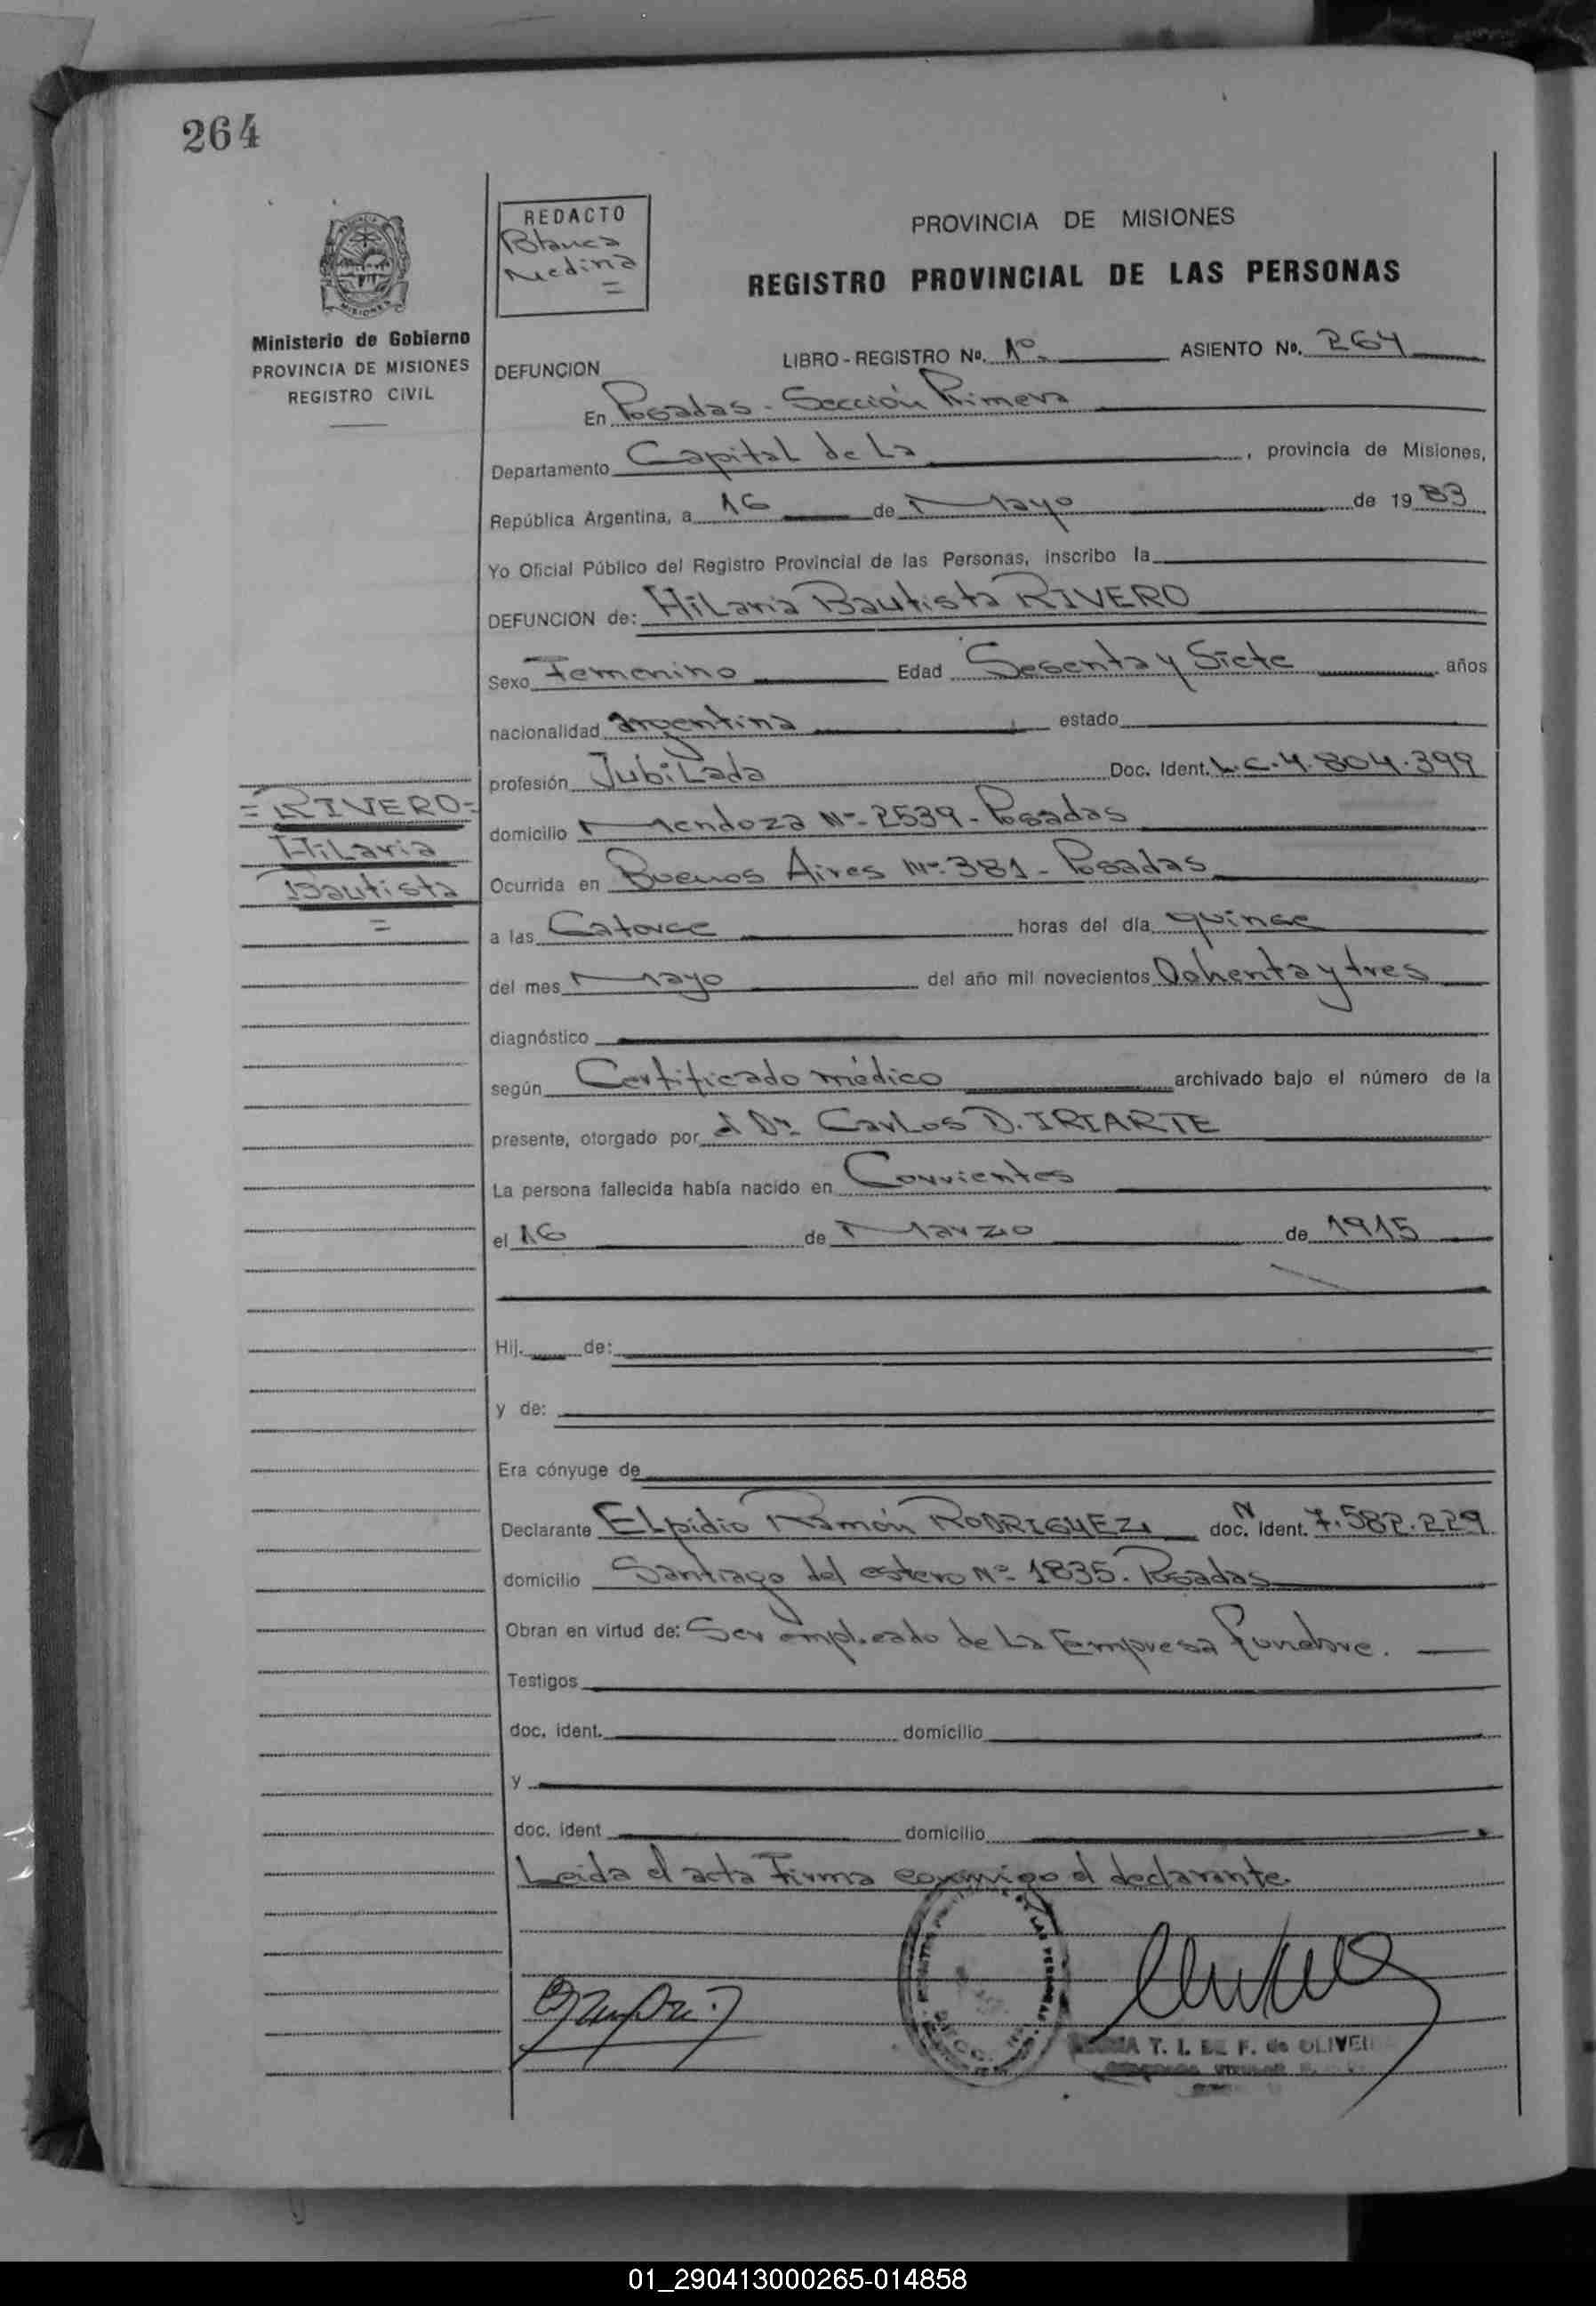 264
REDACTO
Blanca
Medina
=
PROVINCIA DE MISIONES
REGISTRO PROVINCIAL DE LAS PERSONAS
Ministerio de Gobierno
PROVINCIA DE MISIONES
REGISTRO CIVIL
DEFUNCION
LIBRO - REGISTRO No. 1º ASIENTO No. 264
En Posadas - Sección Primera
Departamento Capital de La, provincia de Misiones,
República Argentina, a 16 de Mayo de 1983
Yo Oficial Público del Registro Provincial de las Personas, inscribo la
DEFUNCION de: Hilaria Bautista RIVERO
Sexo Femenino Edad Sesenta y Siete años
nacionalidad argentina estado
profesión Jubilada Doc. Ident. L.C.4.804.399
= RIVERO =
Hilaria
Bautista
=
domicilio Mendoza Nº 2539 - Posadas
Ocurrida en Buenos Aires Nº 381 - Posadas
a las Catorce horas del día quince
del mes Mayo del año mil novecientos Ochenta y tres
diagnóstico
según Certificado médico archivado bajo el número de la
presente, otorgado por el Dr. Carlos D. IRIARTE
La persona fallecida había nacido en Corrientes
el 16 de Marzo de 1915
Hij. de:
y de:
Era cónyuge de
Declarante Elpidio Ramón RODRIGUEZ doc. Ident. N 7.582.229
domicilio Santiago del estero Nº 1835. Posadas
Obran en virtud de: Ser empleado de La Empresa fúnebre.
Testigos
doc. ident. domicilio
y
doc. ident domicilio
Leida el acta Firma conmigo el declarante.
T. I. DE F. de OLIVEI
01_290413000265-014858